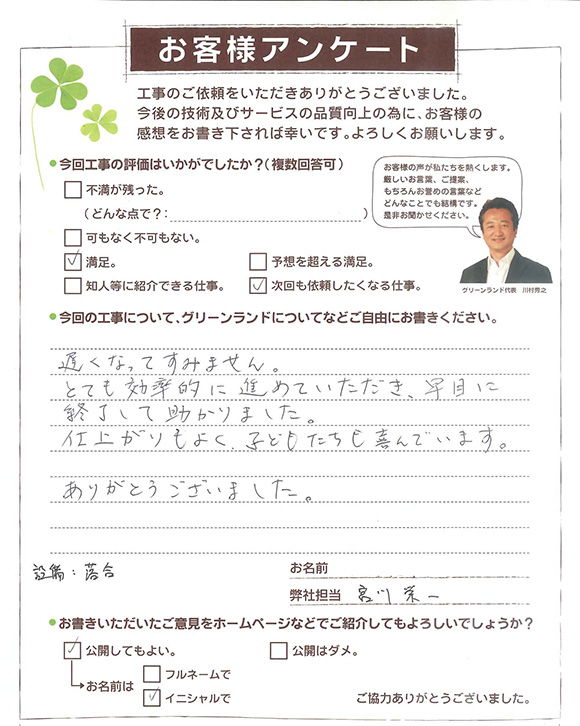 お客様アンケート
工事のご依頼をいただきありがとうございました。
今後の技術及びサービスの品質向上の為に、お客様の
感想をお書き下されば幸いです。よろしくお願いします。
今回工事の評価はいかがでしたか？（複数回答可）
不満が残った。
（どんな点で？：　　　　）
可もなく不可もない。
満足。
予想を超える満足。
知人等に紹介できる仕事。
次回も依頼したくなる仕事。
お客様の声が私たちを熱くします。
厳しいお言葉、ご提案、
もちろんお誉めの言葉など
どんなことでも結構です。
是非お聞かせください。
グリーンランド代表　川村秀之
今回の工事について、グリーンランドについてなどご自由にお書きください。
遅くなってすみません。
とても効率的に進めていただき、早目に
終了して助かりました。
仕上がりもよく、子どもたちも喜んでいます。
ありがとうございました。
設備：落合
お名前
弊社担当 宮川 栄一
お書きいただいたご意見をホームページなどでご紹介してもよろしいでしょうか？
公開してもよい。
公開はダメ。
お名前は
フルネームで
イニシャルで
ご協力ありがとうございました。